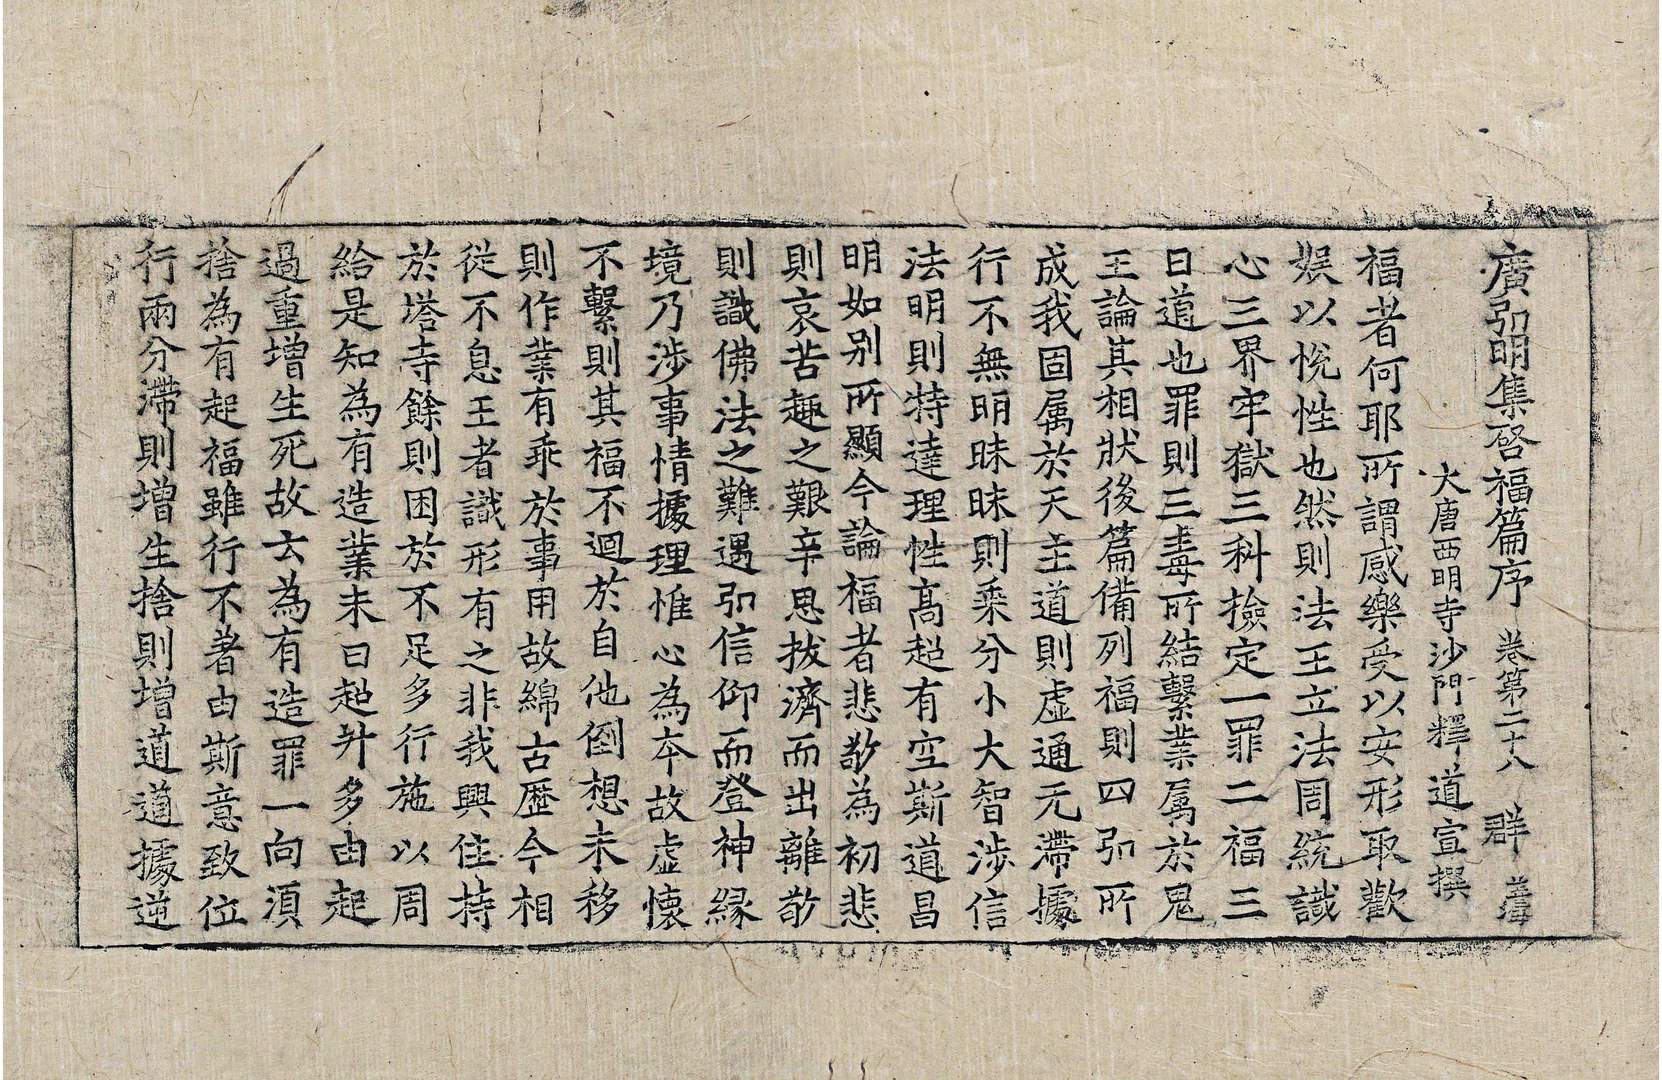 廣弘明集啓福篇序 卷第二十八 群
大唐西明寺沙門釋 道宣撰
福者何耶所謂感樂受以安形取歡
娱以悅性也然則法王立法周統識
心三界牢獄三科撿定一罪二福三
曰道也罪則三毒所結繫業属於鬼
王論其相狀後篇備列福則四弘所
成我固属於天主道則虛通无滯據
行不無明昧昧則乘分小大智涉信
法明則特達理性高超有空斯道昌
明如别所顯今論福者悲敬為初悲
則哀苦趣之艱辛思拔濟而出離敬
則識佛法之難遇弘信仰而登神縁
境乃涉事情據理惟心為本故虛懷
不繫則其福不迴於自他倒想未移
則作業有乖於事用故綿古歴今相
從不息王者識形有之非我興住持
於塔寺餘則困於不足多行施以周
給是知為有造業未曰超升多由起
過重增生死故云為有造罪一向須
捨為有起福雖行不著由斯意致位
行兩分滯則增生捨則增道道據逆